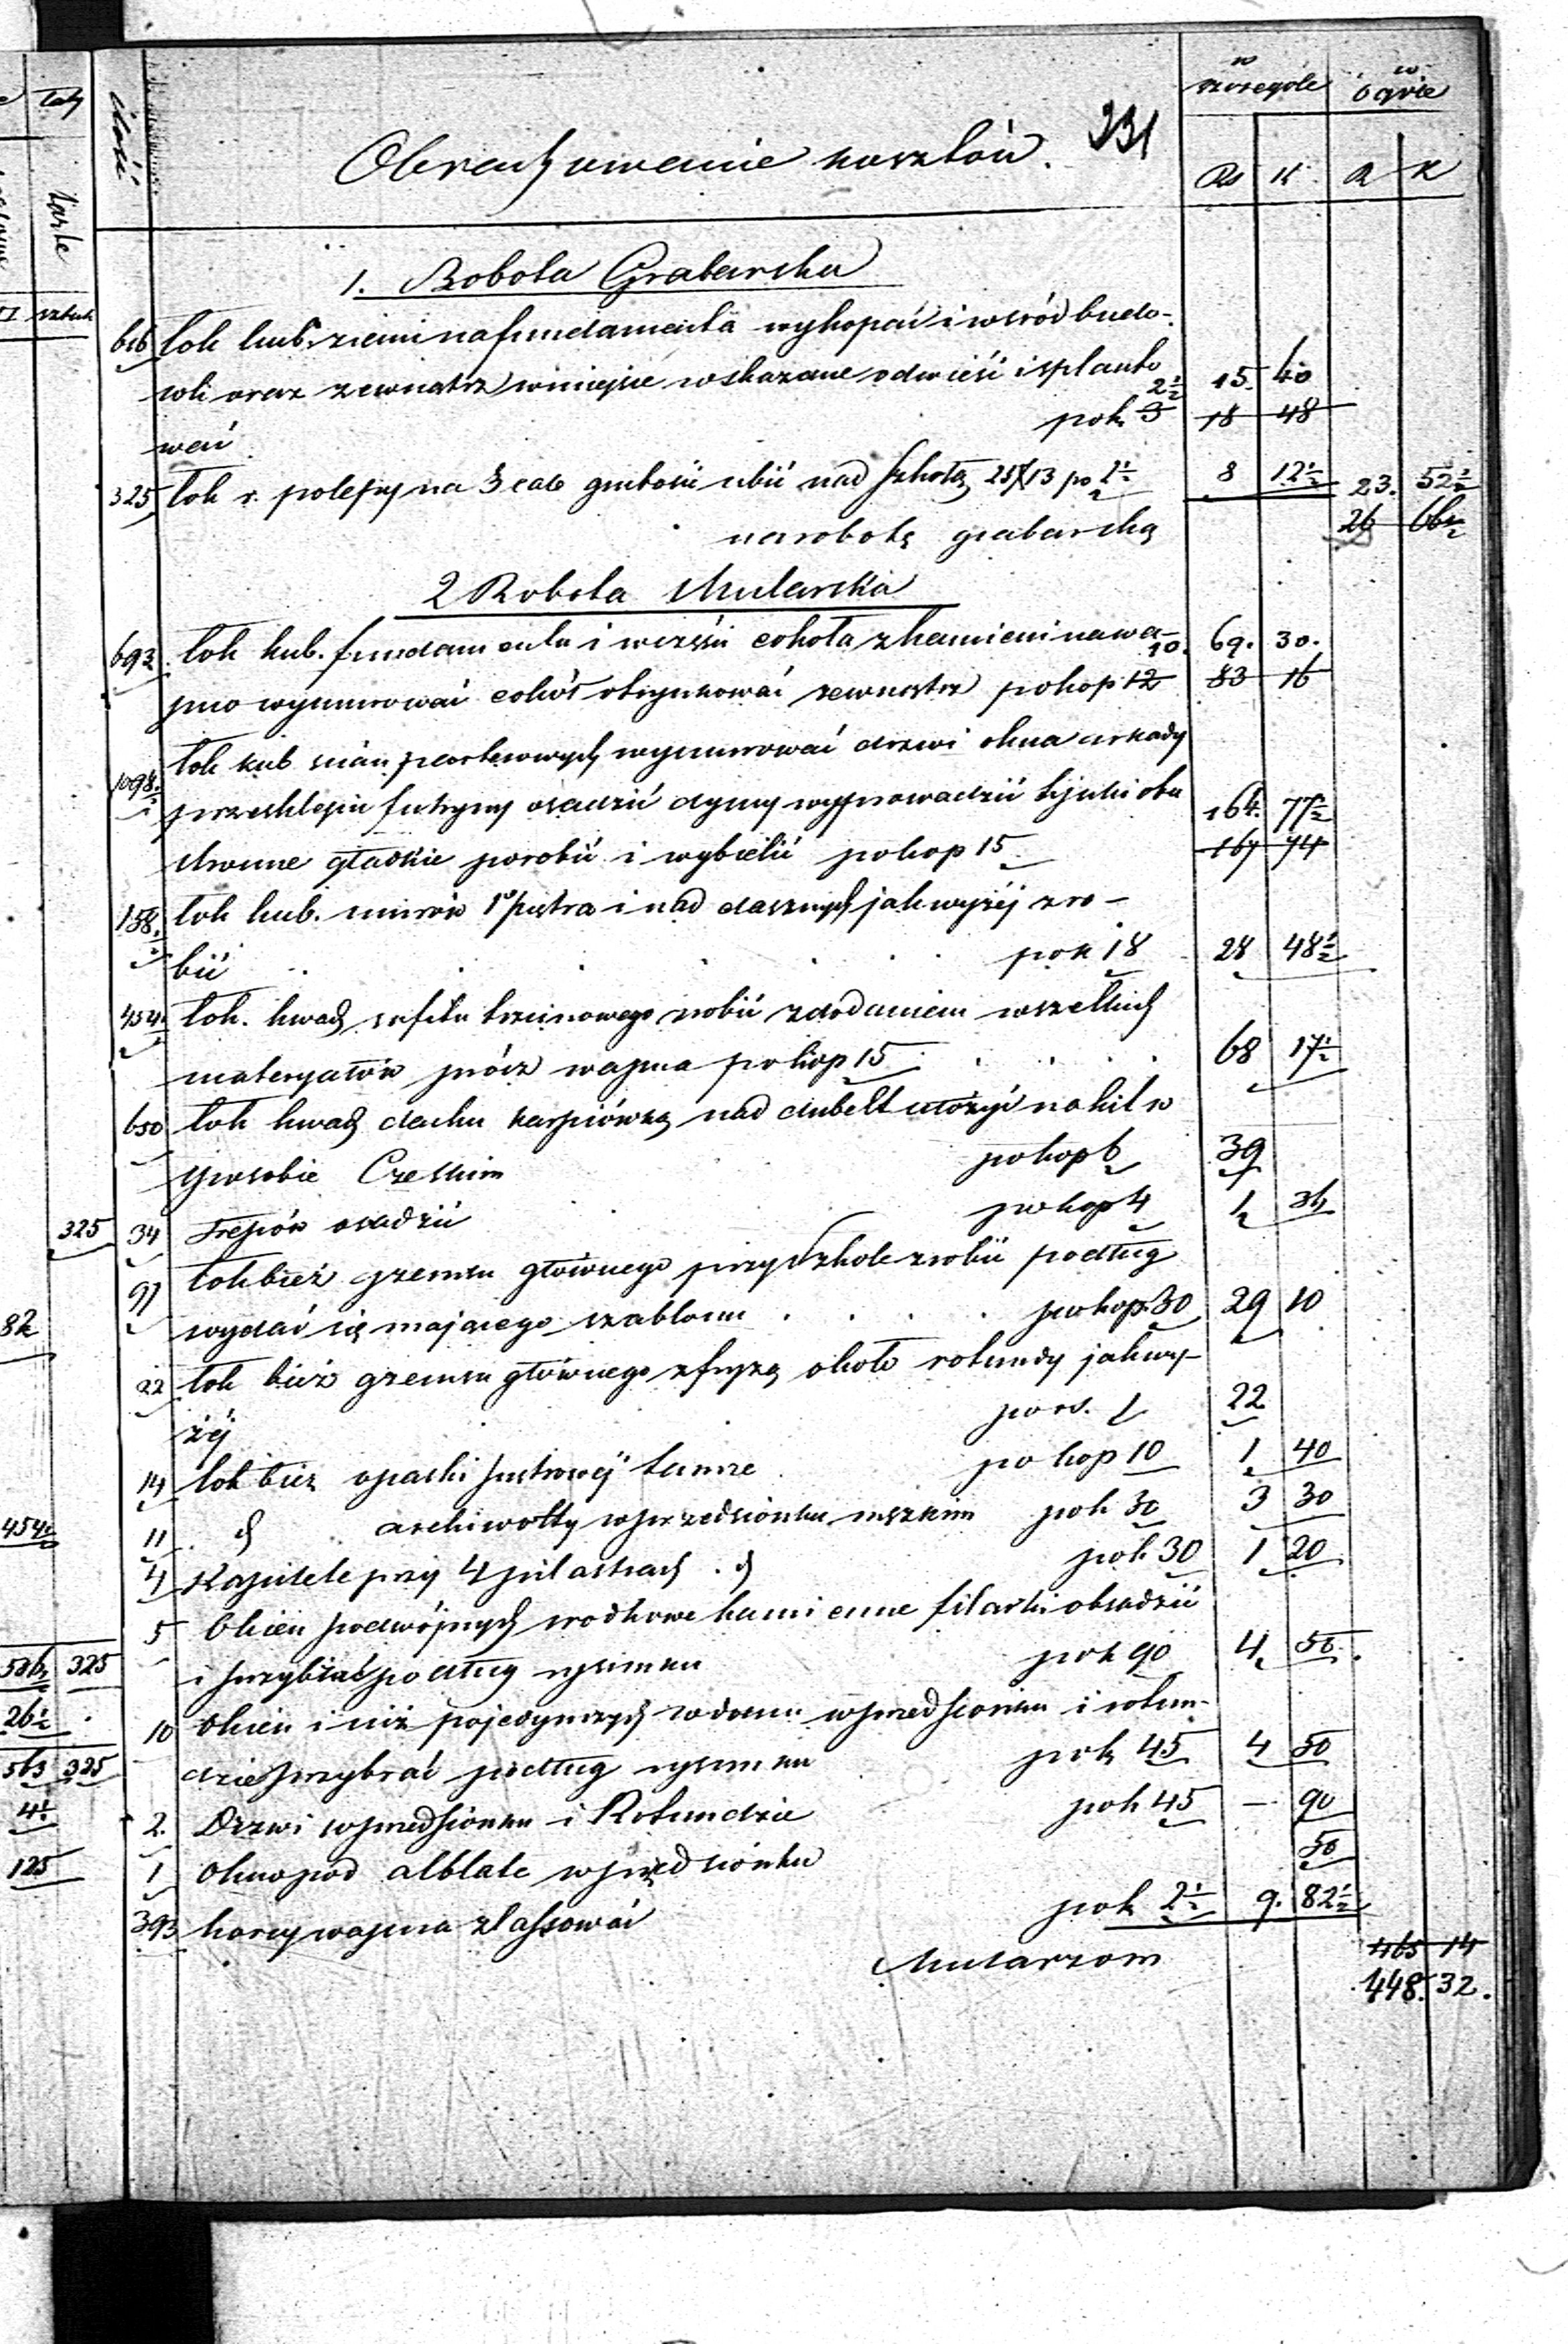 w szczególe w ogóle
ilość
Obrachowanie kosztów. 331
Rs K R K
1. Robota Grabarska
616 łok kub. ziemi na fundamenta wykopać i wśród budo-
wli oraz zewnątrz w miejsce wskazane odwieść i splanto 2½ 15. 40
wać po k 3 18 48
325 łok k. polepy na 3 cale grubości ubić nad szkołą 25/13 po 2½ 8 12½ 23. 52½
na robotę grabarską 26 60½
2 Robota Mularska
693 łok kub. fundamentu i wierzchu cokołu z kamieni na wa- 10. 69. 30.
pno wymurować cokół obrzucować zewnątrz po kop 12 83 16
łok kub ścian parterowych wymurować drzwi okna arkady
1098.½ przesklepić futryny osadzić dymy wyprowadzić tynki obu 164. 77½
stronne gładkie porobić i wybielić po kop 15 167 74
158.½ łok kub. murów 1º piętra i nad dasznych jak wyżéj zro-
bić po k 18 28 48½
454.½ łok. kwad. sufitu trzcinowego zrobić z dodaniem wszelkich
materyałów prócz wapna po kop 15 68 17½
650 łok kwad. dachu karpiówką nad dubelt ułożyć na kit w
sposobie Czeskim po kop 6 39
34 Trepów osadzić po kop 4 1 36
97 łok bież gzemsu głównego przy Szkole zrobić podług
wydać się mającego szablonu po kop. 30 29 10
22 łok bież gzemsu głównego z fryzą około rotundy jak wy-
żéj po rs. 1 22
14 łok bież opaski piętrowéj tamże po kop 10 1 40
11 d archiwolty w przedsionku męzkim po k 30 3 30
4 Kapitele przy 4 pilastrach d po k 30 1 20
5 Okien podwójnych środkowe kamienne filarki obsadzić
i przybrać podług rysunku po k 90 4 50
10 Okien i nisz pojedynczych w domu w przedsionku i rotun-
dzie przybrać podług rysunku po k 45 4 50
2. Drzwi w przedsionku i Rotundzie po k 45 – 90
1 Okno pod w przedsionku 50
393 korcy wapna zlassować po k 2½ 9. 82½
Mularzom 465 14
448. 32.
łaty
tarte
sztuk
325
82
454½
586½ 325
26½
563 325
4½
125